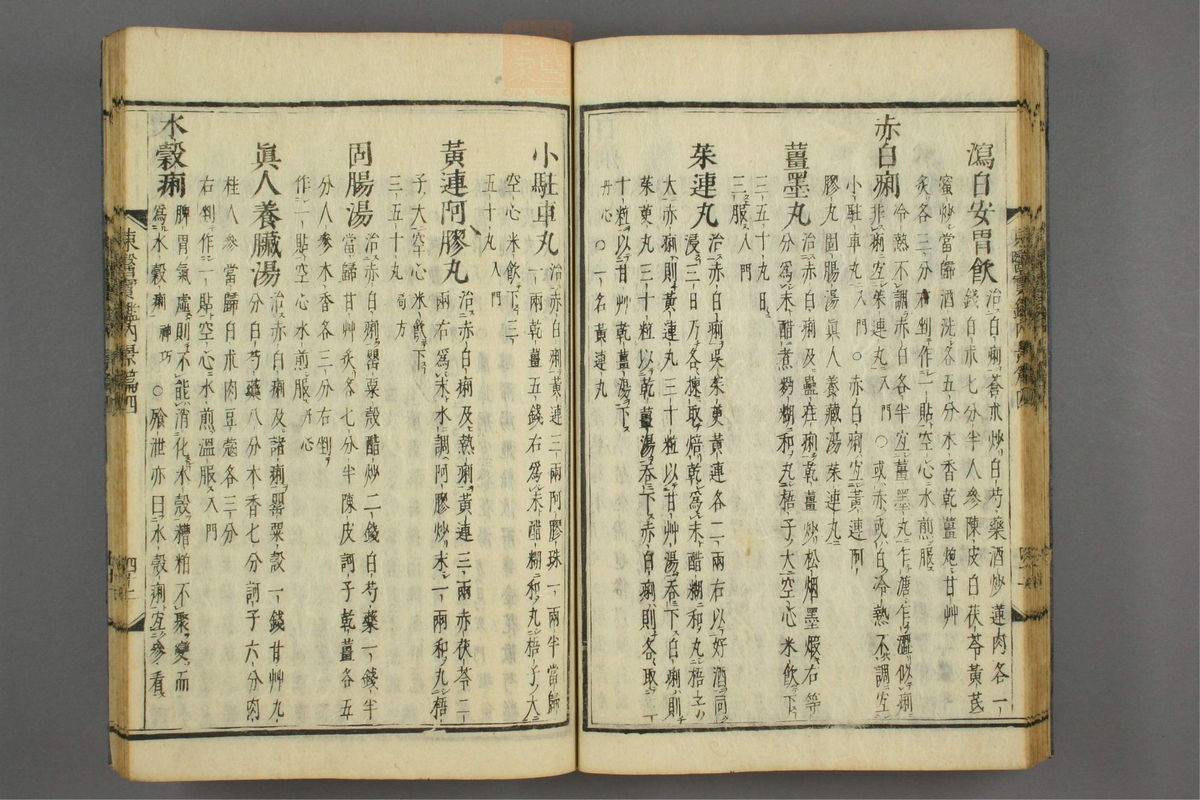 瀉白安胃飮 治白痢蒼朮炒白芍藥酒炒蓮肉各一
錢白朮七分半人參陳皮白茯苓黃芪
蜜炒當歸酒洗各五分木香乾薑炮甘艸
炙各三分右剉作一貼空心水煎服
赤白痢 冷熱不調赤白各半宜薑墨丸乍溏乍澀似痢
非痢宜茱連丸入門○或赤或白冷熱不調宜
小駐車丸入門○赤白痢宜黃連阿
膠丸固腸湯眞人養藏湯茱連丸
薑墨丸 治赤白痢及蠱疰痢乾薑炒松烟墨煆右等
分爲末醋煮麪糊和丸梧子大空心米飮下
三五十丸日
三服入門
茱連丸 治赤白痢吳茱萸黃連各二兩右以好酒同
浸三日乃各揀取焙乾爲末醋糊和丸梧子大
赤痢則黃連丸三十粒以甘艸湯呑下白痢則
茱萸丸三十粒以乾薑湯呑下赤白痢則各取三
十粒以甘艸乾薑湯下
丹心○一名黃連丸
小駐車丸 治赤白痢黃連三兩阿膠珠一兩半當歸
一兩乾薑五錢右爲末醋糊和丸梧子大
空心米飮下三
五十丸入門
黃連阿膠丸 治赤白痢及熱痢黃連三兩赤茯苓二
兩右爲末水調阿膠炒末一兩和丸梧
子大空心米飮下
三五十丸局方
固腸湯 治赤白痢罌粟殼醋炒二錢白芍藥一錢半
當歸甘艸灸各七分半陳皮訶子乾薑各五
分人參木香各三分右剉
作一貼空心水煎服丹心
眞人養臟湯 治赤白痢及諸痢罌粟殼一錢甘艸九
分白芍藥八分木香七分訶子六分肉
桂人參當歸白朮肉豆蔲各三分
右剉作一貼空心水煎溫服入門
水穀痢 脾胃氣虛則不能消化水穀糟粕不聚變而
爲水穀痢神巧○飱泄亦曰水穀痢宜參看
東醫寶鑑內景篇四
四十二